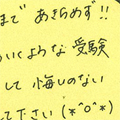 まで あきらめず!!
いくような 受験
して 悔しのない
て下さい (*^o^*)